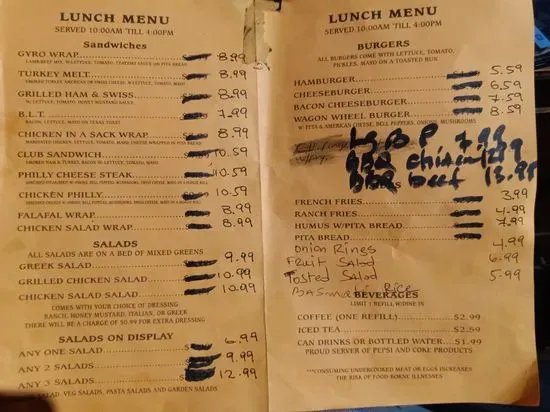 LUNCH MENU
SERVED 10:00AM 'TILL 4:00PM
Sandwiches
GYRO WRAP 8.99
LAMB/BEEF MIX, W/LETTUCE, TOMATO, ONION, TZATZIKI SAUCE ON PITA BREAD
TURKEY MELT 8.99
SMOKED TURKEY, AMERICAN OR SWISS CHEESE, W/LETTUCE, TOMATO, MAYO
GRILLED HAM & SWISS 8.99
W/LETTUCE, TOMATO, HONEY MUSTARD SAUCE
B.L.T. 7.99
BACON, LETTUCE, MAYO ON TEXAS TOAST
CHICKEN IN A SACK WRAP 8.99
MARINATED CHICKEN, LETTUCE, TOMATO, MAYO, CHEESE WRAPPED IN PITA BREAD
CLUB SANDWICH 10.59
SMOKED TURKEY & HAM W/ BACON, LETTUCE, TOMATO, MAYO
PHILLY CHEESE STEAK 10.59
CHICKEN PHILLY 10.59
FALAFAL WRAP 8.99
CHICKEN SALAD WRAP 8.99
SALADS
ALL SALADS ARE ON A BED OF MIXED GREENS
GREEK SALAD 9.99
GRILLED CHICKEN SALAD 10.99
CHICKEN SALAD SALAD 10.99
COMES WITH YOUR CHOICE OF DRESSING
RANCH, HONEY MUSTARD, ITALIAN, OR GREEK
THERE WILL BE A CHARGE OF $0.99 FOR EXTRA DRESSING
SALADS ON DISPLAY
ANY ONE SALAD 6.99
ANY 2 SALADS 9.99
ANY 3 SALADS 12.99
SALAD, VEG SALADS, PASTA SALADS AND GARDEN SALADS
LUNCH MENU
SERVED 10:00AM 'TILL 4:00PM
BURGERS
ALL BURGERS COME WITH LETTUCE, TOMATO,
PICKLES, MAYO ON A TOASTED BUN
HAMBURGER 5.59
CHEESEBURGER 6.59
BACON CHEESEBURGER 7.59
WAGON WHEEL BURGER 8.59
W/PITA & AMERICAN CHEESE, BELL PEPPERS, ONIONS, MUSHROOMS
Lg B P 7.99
BBQ chicken
BBQ beef 13.99
FRENCH FRIES 3.99
RANCH FRIES 4.99
HUMUS W/PITA BREAD 7.99
PITA BREAD
Onion Rings 4.99
Fruit Salad 6.99
Tosted Salad 5.99
BASmati Rice
BEVERAGES
LIMIT 1 REFILL W/DINE IN
COFFEE (ONE REFILL) $2.99
ICED TEA $2.59
CAN DRINKS OR BOTTLED WATER $1.99
PROUD SERVER OF PEPSI AND COKE PRODUCTS
**CONSUMING UNDERCOOKED MEAT OR EGGS INCREASES
THE RISK OF FOOD BORNE ILLNESSES